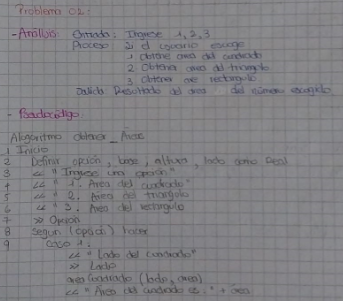 Problema 02:
- Análisis: Entrada: Ingrese 1, 2, 3
Proceso Si el usuario escoge
1 obtene area del cuadrado
2 Obtener area del triangulo
3 obtener are rectangulo
Salida Resultado del area del número escogido
- Pseudocódigo
Algoritmo obtener_Areas
1 Inicio
2 Definir opción, base, altura, lado como Real
3 << "Ingrese una opción"
4 << "1. Area del cuadrado"
5 << "2. Area del triangulo
6 << "3. Area del rectangulo
7 >> Opcion
8 Segun (opcion) hacer
9 Caso 1:
<< "Lado del cuadrado"
>> Lado
area Cuadrado (lado, area)
<< "Area del cuadrado es " + area